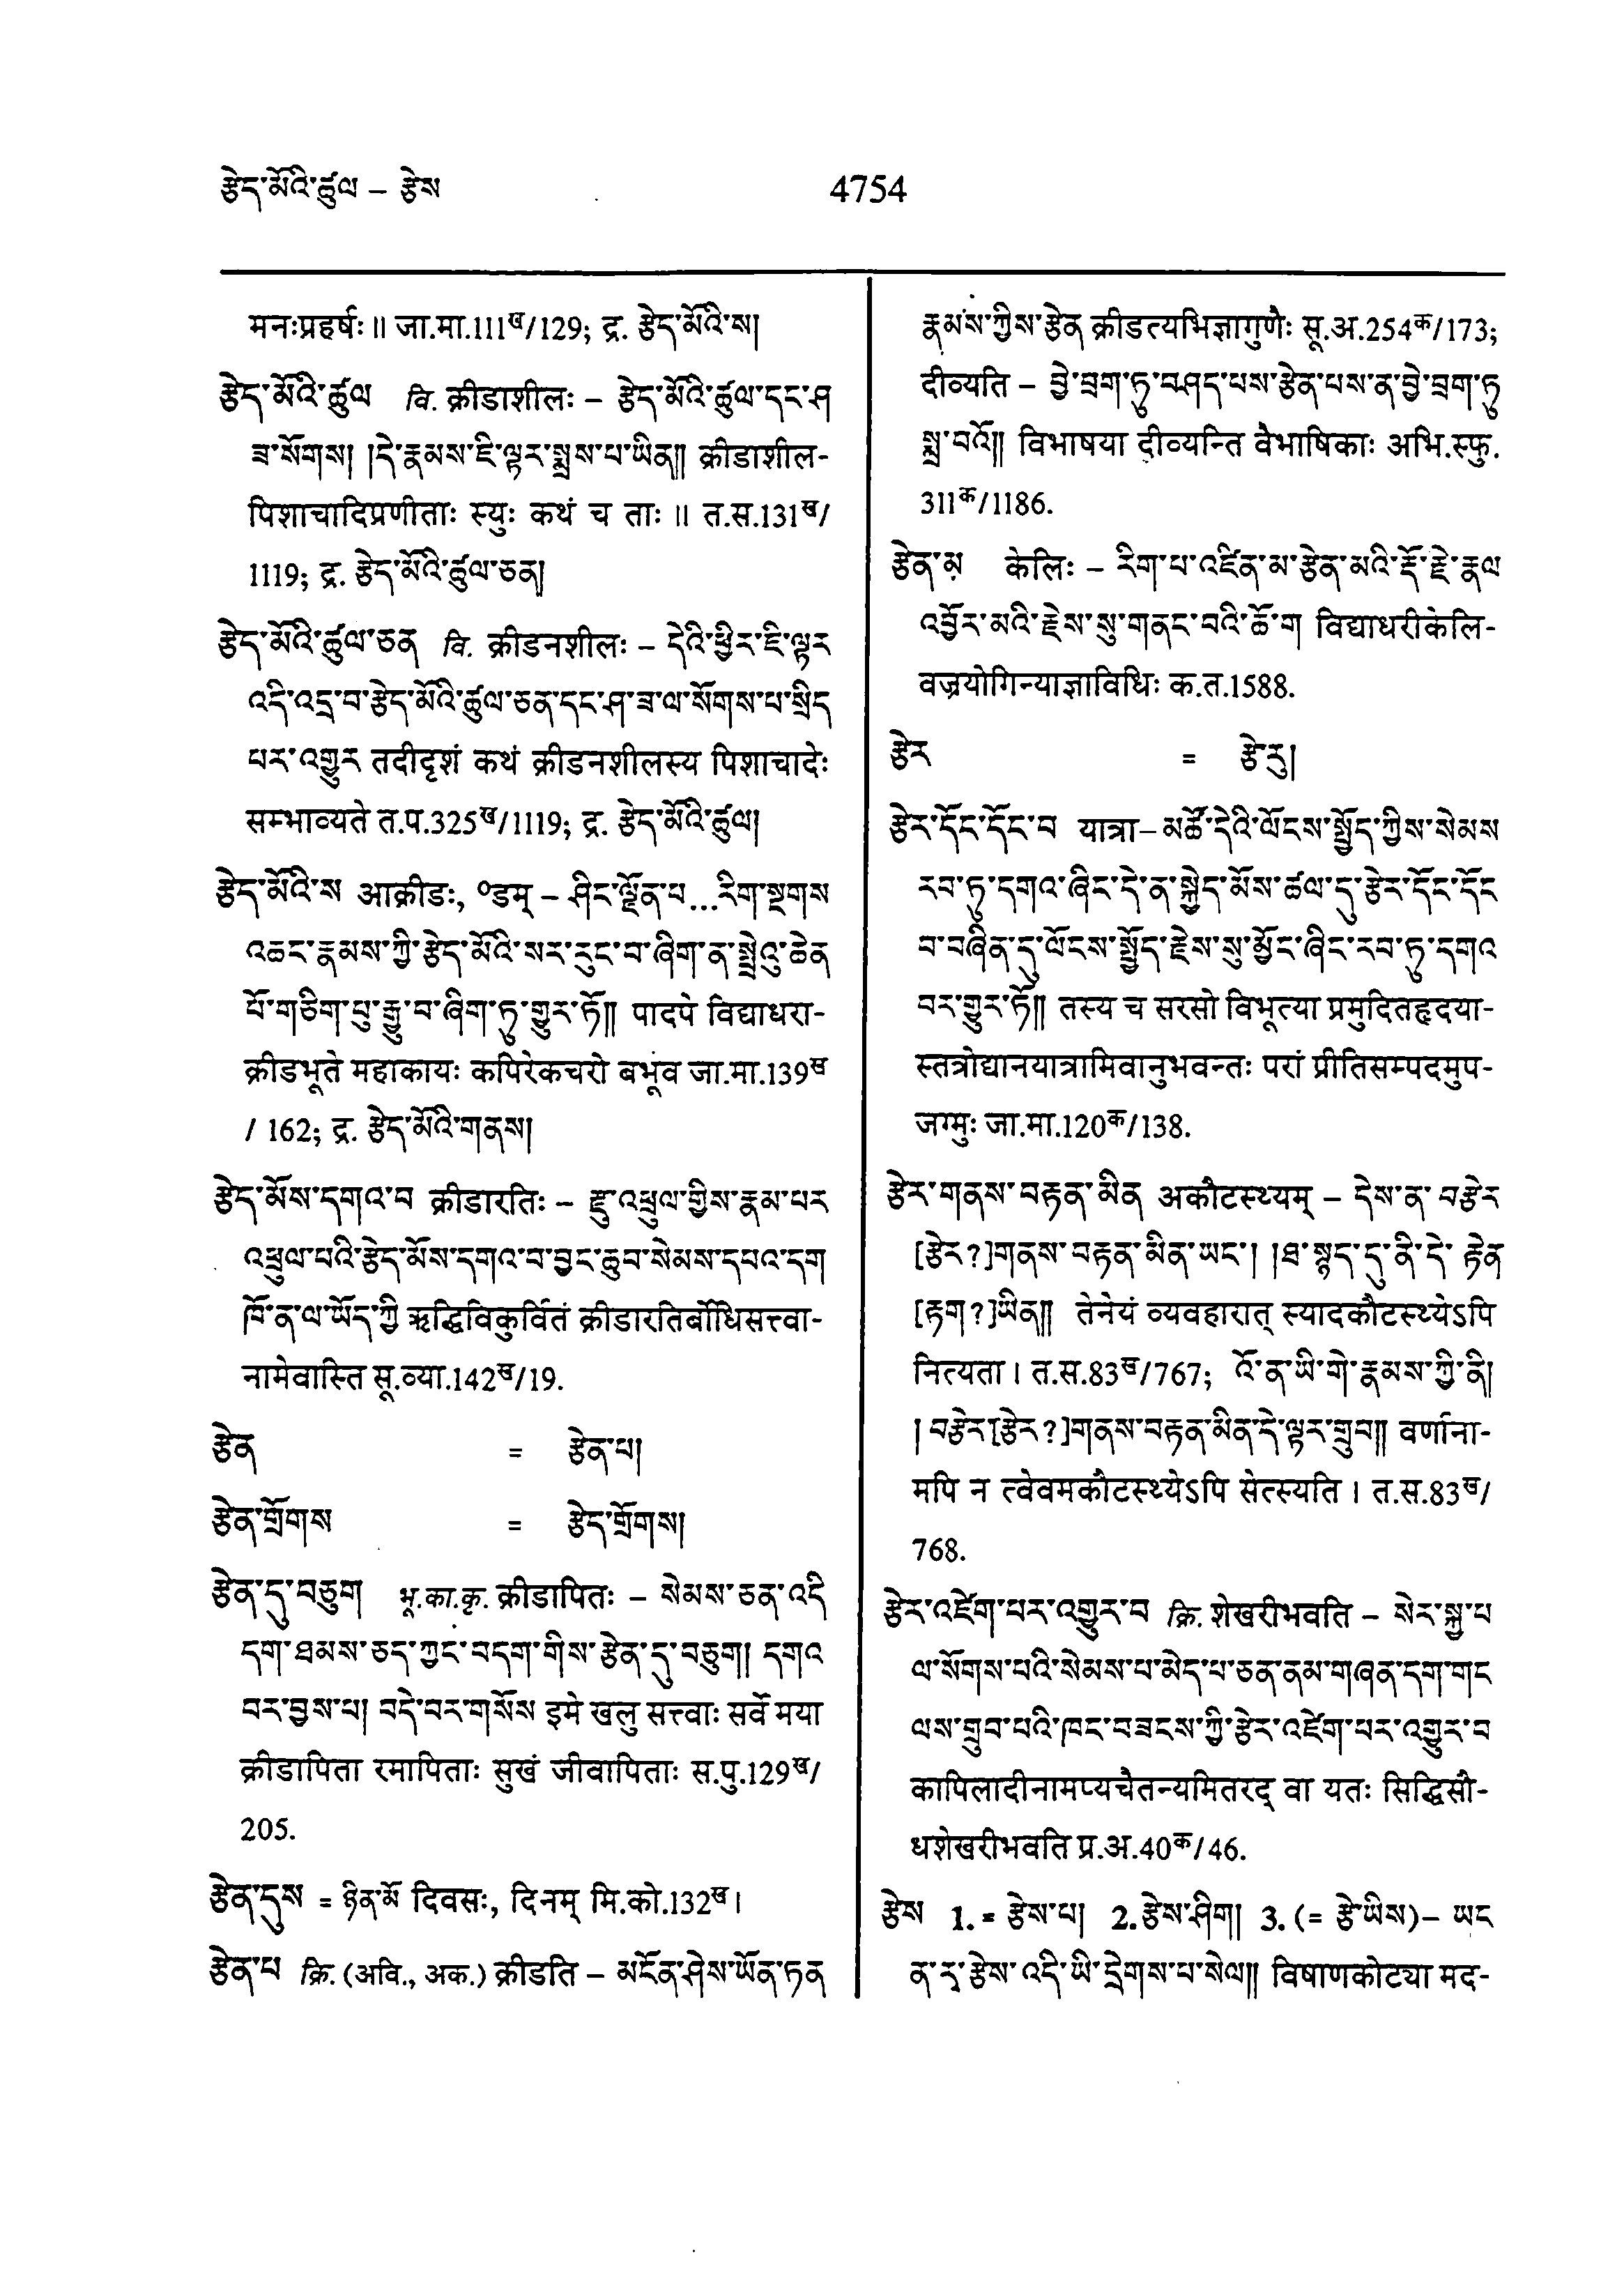 རྩེད་མོའི་ཚུལ – རྩེས
4754
मनःप्रहर्षः॥ जा.मा.111ख/129; द्र. རྩེད་མོའི་ས།
རྩེད་མོའི་ཚུལ वि. क्रीडाशीलः – རྩེད་མོའི་ཚུལ་དང་ཤ
ཟ་སོགས། །དེ་རྣམས་ཇི་ལྟར་སྨྲས་པ་ཡིན།། क्रीडाशील-
पिशाचादिप्रणीताः स्युः कथं च ताः॥ त.स.131ख/
1119; द्र. རྩེད་མོའི་ཚུལ་ཅན།
རྩེད་མོའི་ཚུལ་ཅན वि. क्रीडनशीलः – དེའི་ཕྱིར་ཇི་ལྟར
འདི་འདྲ་བ་རྩེད་མོའི་ཚུལ་ཅན་དང་ཤ་ཟ་ལ་སོགས་པ་སྲིད
པར་འགྱུར तदीदृशं कथं क्रीडनशीलस्य पिशाचादेः
सम्भाव्यते त.प.325ख/1119; द्र. རྩེད་མོའི་ཚུལ།
རྩེད་མོའི་ས आक्रीडः, ०डम् – ཤིང་ལྗོན་པ...རིག་སྔགས
འཆང་རྣམས་ཀྱི་རྩེད་མོའི་སར་རུང་བ་ཞིག་ན་སྤྲེའུ་ཆེན
པོ་གཅིག་པུ་རྒྱུ་བ་ཞིག་ཏུ་གྱུར་ཏོ།། पादपे विद्याधरा-
क्रीडभूते महाकायः कपिरेकचरो बभूव जा.मा.139ख
/ 162; द्र. རྩེད་མོའི་གནས།
རྩེད་མོས་དགའ་བ क्रीडारतिः – རྫུ་འཕྲུལ་གྱིས་རྣམ་པར
འཕྲུལ་པའི་རྩེད་མོས་དགའ་བ་བྱང་ཆུབ་སེམས་དཔའ་དག
ཁོ་ན་ལ་ཡོད་ཀྱི ऋद्धिविकुर्वितं क्रीडारतिर्बोधिसत्त्वा-
नामेवास्ति सू.व्या.142ख/19.
རྩེན = རྩེན་པ།
རྩེན་གྲོགས = རྩེད་གྲོགས།
རྩེན་དུ་བཅུག भू.का.कृ. क्रीडापितः – སེམས་ཅན་འདི
དག་ཐམས་ཅད་ཀྱང་བདག་གིས་རྩེན་དུ་བཅུག། དགའ
བར་བྱས་པ། བདེ་བར་གསོས इमे खलु सत्त्वाः सर्वे मया
क्रीडापिता रमापिताः सुखं जीवापिताः स.पु.129ख/
205.
རྩེན་དུས = ཉིན་མོ दिवसः, दिनम् मि.को.132ख।
རྩེན་པ क्रि. (अवि., अक.) क्रीडति – མངོན་ཤེས་ཡོན་ཏན
རྣམས་ཀྱིས་རྩེན क्रीडत्यभिज्ञागुणैः सू.अ.254क/173;
दीव्यति – བྱེ་བྲག་ཏུ་བཤད་པས་རྩེན་པས་ན་བྱེ་བྲག་ཏུ
སྨྲ་བའོ།། विभाषया दीव्यन्ति वैभाषिकाः अभि.स्फु.
311क/1186.
རྩེན་མ केलिः – རིག་པ་འཛིན་མ་རྩེན་མའི་རྡོ་རྗེ་རྣལ
འབྱོར་མའི་རྗེས་སུ་གནང་བའི་ཆོ་ག विद्याधरीकेलि-
वज्रयोगिन्याज्ञाविधिः क.त.1588.
རྩེར = རྩེ་རུ།
རྩེར་དོང་དོང་བ यात्रा– མཚོ་དེའི་ལོངས་སྤྱོད་ཀྱིས་སེམས
རབ་ཏུ་དགའ་ཞིང་དེ་ན་སྐྱེད་མོས་ཚལ་དུ་རྩེར་དོང་དོང
བ་བཞིན་དུ་ལོངས་སྤྱོད་རྗེས་སུ་མྱོང་ཞིང་རབ་ཏུ་དགའ
བར་གྱུར་ཏོ།། तस्य च सरसो विभूत्या प्रमुदितहृदया-
स्तत्रोद्यानयात्रामिवानुभवन्तः परां प्रीतिसम्पदमुप-
जग्मुः जा.मा.120क/138.
རྩེར་གནས་བརྟན་མིན अकौटस्थ्यम् – དེས་ན་བརྩེར
[རྩེར?]གནས་བརྟན་མིན་ཡང་། །ཐ་སྙད་དུ་ནི་དེ་རྟེན
[རྟག?]ཡིན།། तेनेयं व्यवहारात् स्यादकौटस्थ्येऽपि
नित्यता। त.स.83ख/767; འོ་ན་ཡི་གེ་རྣམས་ཀྱི་ནི།
།བརྩེར[རྩེར?]གནས་བརྟན་མིན་དེ་ལྟར་གྲུབ།། वर्णाना-
मपि न त्वेवमकौटस्थ्येऽपि सेत्स्यति। त.स.83ख/
768.
རྩེར་འཛེག་པར་འགྱུར་བ क्रि. शेखरीभवति – སེར་སྐྱ་པ
ལ་སོགས་པའི་སེམས་པ་མེད་པ་ཅན་ནམ་གཞན་དག་གང
ལས་གྲུབ་པའི་ཁང་བཟངས་ཀྱི་རྩེར་འཛེག་པར་འགྱུར་བ
कापिलादीनामप्यचैतन्यमितरद् वा यतः सिद्धिसौ-
धशेखरीभवति प्र.अ.40क/46.
རྩེས 1. = རྩེས་པ། 2. རྩེས་ཤིག། 3. (= རྩེ་ཡིས)– ཡང
ན་རྭ་རྩེས་འདི་ཡི་དྲེགས་པ་སེལ།། विषाणकोट्या मद-